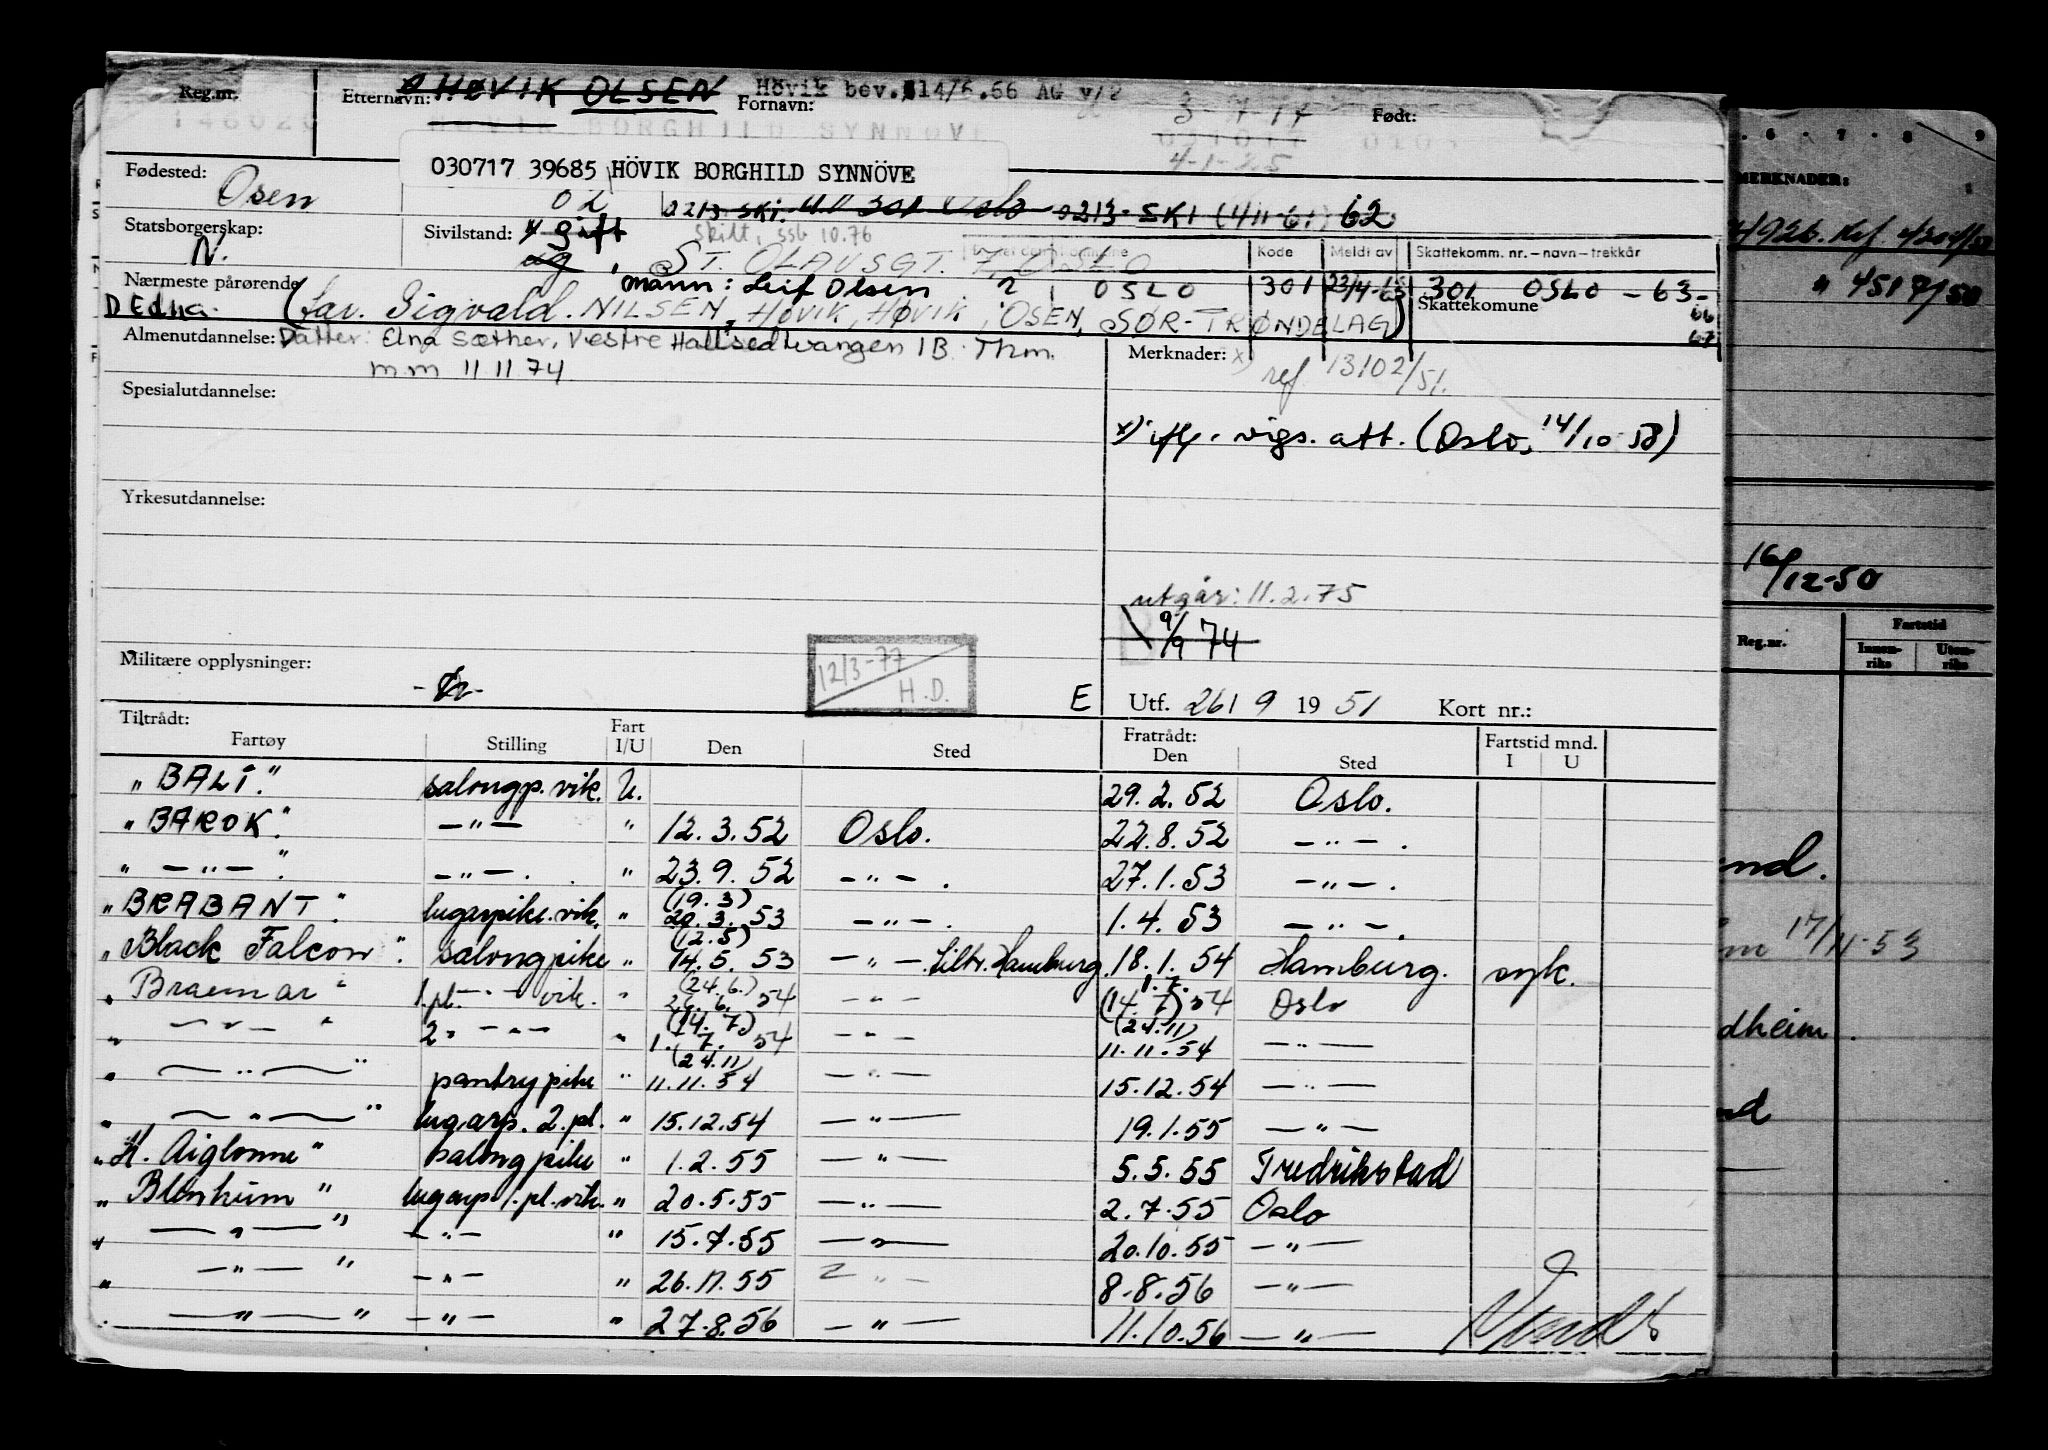 Reg.nr. Etternavn: HØVIK OLSEN Hövik bev. 14/6.66 AG v/2
Fornavn: 3-7-17 Født:
HØVIK BORGHILD SYNNØVE
4-1-25
030717 39685 HÖVIK BORGHILD SYNNÖVE
Fødested: Osen
02 0213 SKI. Oslo 0213 SKI (4/11-61) 62
Statsborgerskap: N.
Sivilstand: x gift
ug
skilt, ssb 10.76
ST. OLAVSGT. 7, OSLO
Kode Meldt av Skattekomm. nr. – navn – trekkår
Nærmeste pårørende
mann: Leif Olsen 2 OSLO 301 23/4-63 301 OSLO - 63-
Skattekomune 66
67
D Edna. (far. Sigvald. NILSEN, HØVIK, HØVIK, OSEN, SØR-TRØNDELAG)
Almenutdannelse: Datter: Elna Sæther, Vestre Hallsedtvangen 1B Thm.
mm 11 11 74
Merknader: x) ref 13102/51.
Spesialutdannelse:
x) ifl. vigs. att. (Oslo, 14/10 58)
Yrkesutdannelse:
utgår: 11.2.75
9/9 74
Militære opplysninger:
12/3-77
H.D.
E Utf. 26/9 1951 Kort nr.:
Tiltrådt: Fart Fratrådt: Fartstid mnd.
Fartøy Stilling I/U Den Sted Den Sted I U
"BALI." salongp. vik. U. 29.2.52 Oslo.
"BAROK." —"— " 12.3.52 Oslo. 22.8.52 —"—.
" —"— ." —"—. " 23.9.52 —"—. 27.1.53 —"—.
"BRABANT." lugarpike. vik. " (19.3) 20.3.53 —"—. 1.4.53 —"—.
"Black Falcon". salongpike " (12.5) 14.5.53 —"—. tiltr. Hamburg. 18.1.54 Hamburg. syk.
"Braemar" 1.pl. —"— vik. " (24.6.) 26.6.54 —"— 1.7. (14.7) 54 Oslo
" —"— " 2" —"— " (14.7) 1.7.54 —"— (24.11) 11.11.54 —"—
" —"— " pantrypike " (24.11) 11.11.54 —"— 15.12.54 —"—
" —"— " lugarp. 2.pl. " 15.12.54 —"— 19.1.55 —"—
"K. Aiglonne" salongpike " 1.2.55 —"— 5.5.55 Fredrikstad
"Blenheim" lugarp. 1.pl. vik. " 20.5.55 —"— 2.7.55 Oslo
" —"— " —"— " 15.7.55 —"— 20.10.55 —"—
" —"— " —"— " 26.11.55 —"— 8.8.56 —"—
" —"— " —"— " 27.8.56 —"— 11.10.56 —"—
Vend
6 - 7 - 8 9
MERKNADER:
4926. Ref
" 4517/50
16/12-50
Reg.nr. Fartstid
Innen-riks Uten-riks
nd.
17/11-53
dheim.
nd